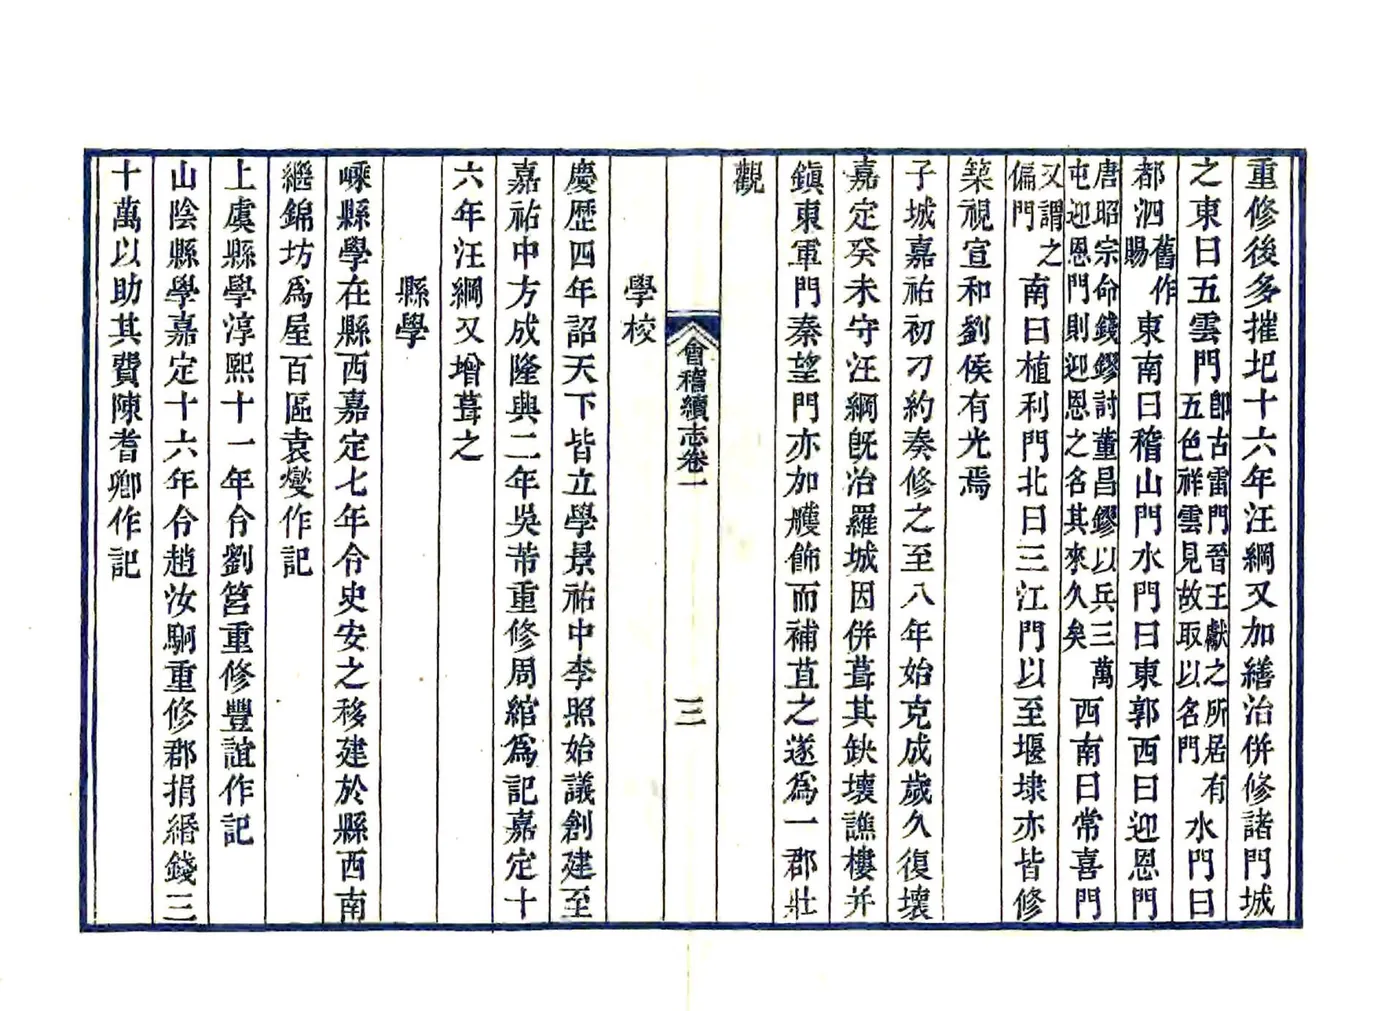 重修後多摧圯十六年汪綱又加繕治併修諸門城
之東曰五雲門卽古雷門晉王獻之所居有五色祥雲見故取以名門水門曰
都泗舊作賜東南曰稽山門水門曰東郭西曰迎恩門
唐昭宗命錢鏐討董昌鏐以兵三萬屯迎恩門則迎恩之名其來久矣西南曰常喜門
又謂之偏門南曰植利門北曰三江門以至堰埭亦皆修
築視宣和劉侯有光焉
子城嘉祐初刁約奏修之至八年始克成歲久復壞
嘉定癸未守汪綱旣治羅城因併葺其缺壞譙樓并
鎭東軍門秦望門亦加艧飾而補苴之遂爲一郡壯
觀
會稽續志卷一
三
學校
慶歷四年詔天下皆立學景祐中李照始議創建至
嘉祐中方成隆興二年吳芾重修周綰爲記嘉定十
六年汪綱又增葺之
縣學
嵊縣學在縣西嘉定七年令史安之移建於縣西南
繼錦坊爲屋百區袁燮作記
上虞縣學淳熙十一年令劉筥重修豐誼作記
山陰縣學嘉定十六年令趙汝駉重修郡捐緡錢三
十萬以助其費陳耆卿作記